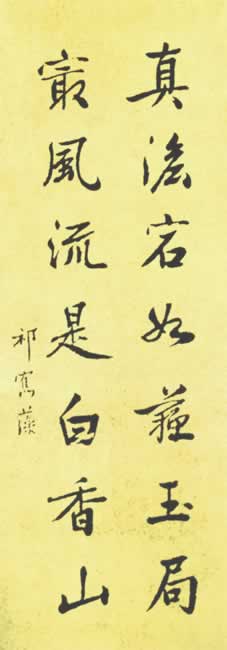 真澹宕如蘇玉局
最風流是白香山
祁寯藻